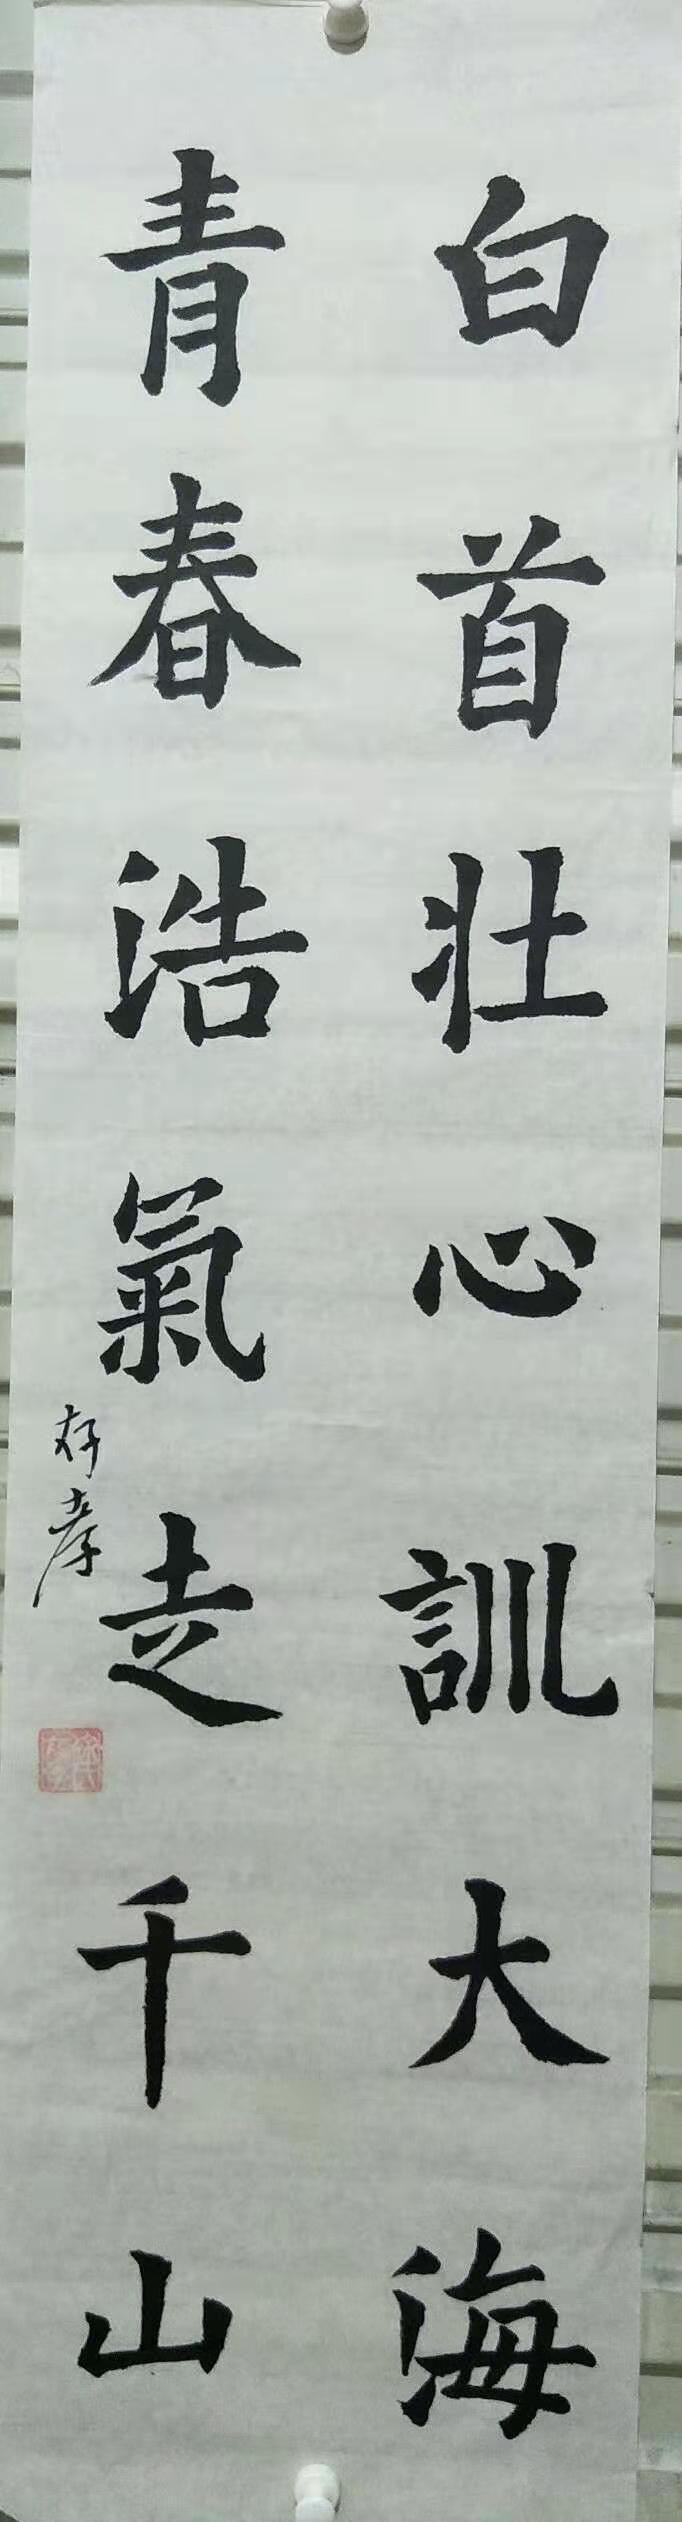 白首壯心訓大海
青春浩氣走千山
存孝